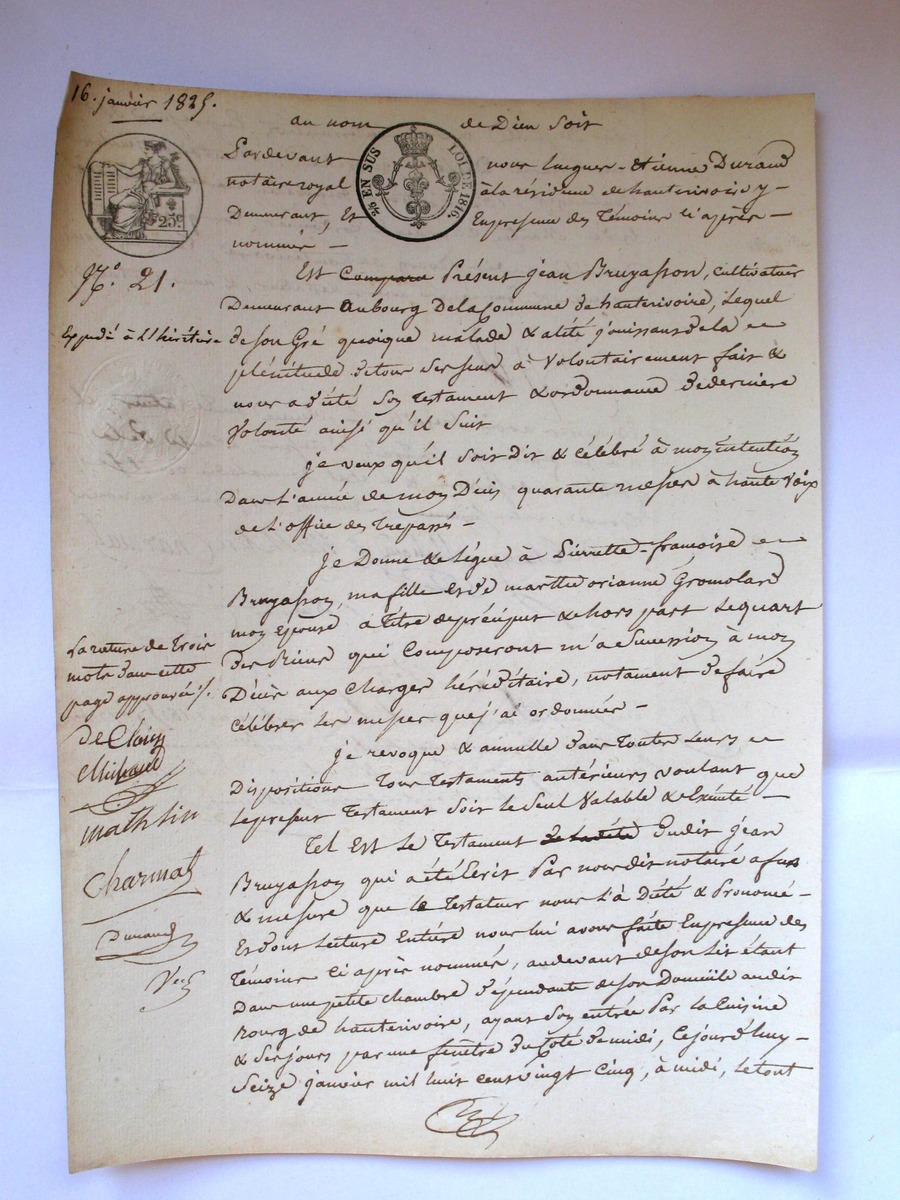 16. janvier 1825.
au nom de Dieu soit
¾ EN SUS LOI DE 1816.
25c
Pardevant nous Jacques-Etienne Durand
notaire royal à la résidence de hauterivoire y
Demeurant, Et En presence des Témoins ci après
nommés
N.º 21.
Est Compara Présent jean Bruyasson, cultivateur
Demeurant Au bourg De la Commune de hauterivoire, Lequel
Expédié à l'héritière
de Son Gré quoique malade & alité jouissant de la
plénitude de tous Ses sens à Volontairement fait &
nous a dicté Son Testament & ordonnance De derniere
Volonté ainsi qu'il Suit
je veux qu'il Soit Dit & célébré à mon intention
Dans L'année de mon Décès quarante messes à haute Voix
de L'office des Trépassés
je Donne & Lègue à Pierrette-francoise
Bruyasson, ma fille Et de marthe Gromolard
mon epouse à titre de préciput & hors part Le quart
Des Biens qui Composeront m'a Succession à mon
Décès aux Charges héréditaire, notament De faire
Célébrer les messes que j'ai ordonnées
je revoque & annulle dans Toutes Leurs
Dispositions Tous Testaments antérieurs voulant que
le present Testament Soit Le Seul Valable & Exécuté
Tel Est Le Testament Dudit jean
Bruyasson qui a été Ecrit Par nous dit notaire a fur
& mesure que le Testateur nous L'à Dicté & Prononcé
Et dont Lecture Entière nous lui avons faite En presence des
Témoins Ci après nommés, au devant de son Lit étant
Dans une petite chambre dépendante de Son Domicile audit
Bourg de hauterivoire, ayant Son entrée Par la Cuisine
& Ses jours par une fenêtre du Coté de midi, Cejourd'huy
Seize janvier mil huit cent vingt Cinq, à midi, Le tout
La rature de trois
mots dans cette
page approuvée ./.
mathlin
Charmat
Durand